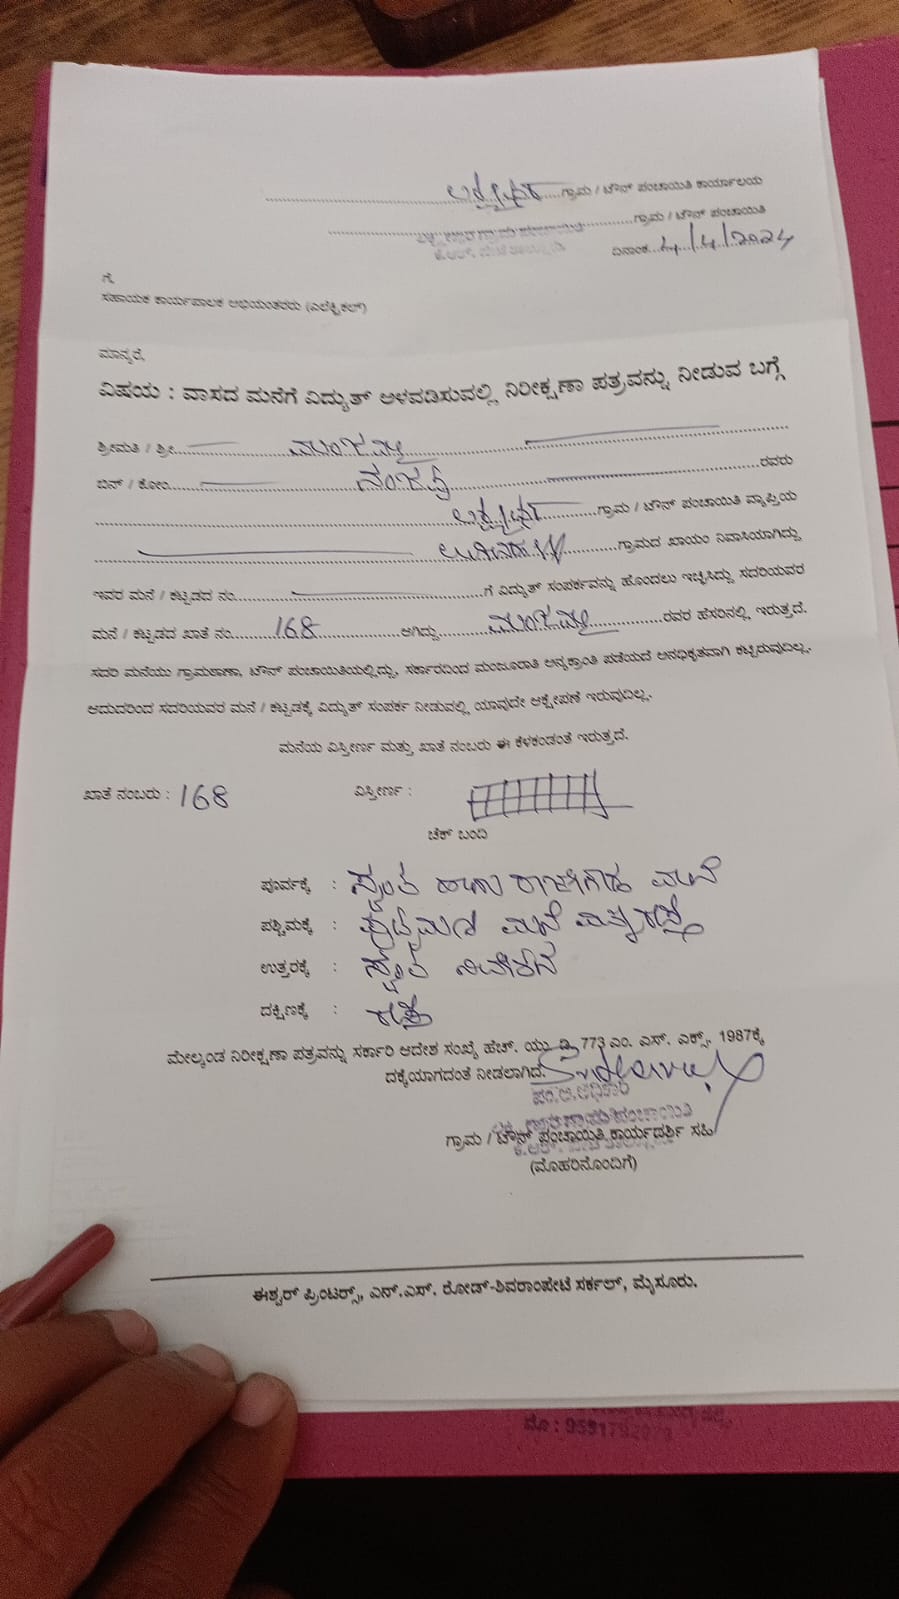 ಗ್ರಾಮ / ಟೌನ್ ಪಂಚಾಯಿತಿ ಕಾರ್ಯಾಲಯ
ಗ್ರಾಮ / ಟೌನ್ ಪಂಚಾಯಿತಿ
ದಿನಾಂಕ 4/4/2024
ಗೆ,
ಸಹಾಯಕ ಕಾರ್ಯಪಾಲಕ ಅಭಿಯಂತರರು (ಎಲೆಕ್ಟ್ರಿಕಲ್)
ಮಾನ್ಯರೆ,
ವಿಷಯ : ವಾಸದ ಮನೆಗೆ ವಿದ್ಯುತ್ ಅಳವಡಿಸುವಲ್ಲಿ ನಿರೀಕ್ಷಣಾ ಪತ್ರವನ್ನು ನೀಡುವ ಬಗ್ಗೆ
ಶ್ರೀಮತಿ / ಶ್ರೀ
ಬಿನ್ / ಕೋಂ ನಂಜಪ್ಪ ರವರು
ಗ್ರಾಮ / ಟೌನ್ ಪಂಚಾಯಿತಿ ವ್ಯಾಪ್ತಿಯ
ಗ್ರಾಮದ ಖಾಯಂ ನಿವಾಸಿಯಾಗಿದ್ದು
ಇವರ ಮನೆ / ಕಟ್ಟಡದ ನಂ. ಗೆ ವಿದ್ಯುತ್ ಸಂಪರ್ಕವನ್ನು ಹೊಂದಲು ಇಚ್ಛಿಸಿದ್ದು ಸದರಿಯವರ
ಮನೆ / ಕಟ್ಟಡದ ಖಾತೆ ನಂ. 168 ಆಗಿದ್ದು ರವರ ಹೆಸರಿನಲ್ಲಿ ಇರುತ್ತದೆ.
ಸದರಿ ಮನೆಯು ಗ್ರಾಮಠಾಣಾ, ಟೌನ್ ಪಂಚಾಯಿತಿಯಲ್ಲಿದ್ದು, ಸರ್ಕಾರದಿಂದ ಮಂಜೂರಾತಿ ಅನ್ಯಕ್ರಾಂತಿ ಪಡೆಯದೆ ಅನಧಿಕೃತವಾಗಿ ಕಟ್ಟಿರುವುದಿಲ್ಲ.
ಆದುದರಿಂದ ಸದರಿಯವರ ಮನೆ / ಕಟ್ಟಡಕ್ಕೆ ವಿದ್ಯುತ್ ಸಂಪರ್ಕ ನೀಡುವಲ್ಲಿ ಯಾವುದೇ ಆಕ್ಷೇಪಣೆ ಇರುವುದಿಲ್ಲ.
ಮನೆಯ ವಿಸ್ತೀರ್ಣ ಮತ್ತು ಖಾತೆ ನಂಬರು ಈ ಕೆಳಕಂಡಂತೆ ಇರುತ್ತದೆ.
ಖಾತೆ ನಂಬರು : 168 ವಿಸ್ತೀರ್ಣ :
ಚೆಕ್ ಬಂದಿ
ಪೂರ್ವಕ್ಕೆ : ಸ್ವಂತ ಹಾಗು ರಾಜೇಗೌಡ ಮನೆ
ಪಶ್ಚಿಮಕ್ಕೆ : ಮನೆ ಮತ್ತು ರಸ್ತೆ
ಉತ್ತರಕ್ಕೆ : ಸ್ವಂತ ನಿವೇಶನ
ದಕ್ಷಿಣಕ್ಕೆ : ರಸ್ತೆ
ಮೇಲ್ಕಂಡ ನಿರೀಕ್ಷಣಾ ಪತ್ರವನ್ನು ಸರ್ಕಾರಿ ಆದೇಶ ಸಂಖ್ಯೆ ಹೆಚ್. ಯು. ಡಿ. 773 ಎಂ. ಎಸ್. ಎಕ್ಸ್. 1987ಕ್ಕೆ
ದಕ್ಕೆಯಾಗದಂತೆ ನೀಡಲಾಗಿದೆ.
ಪಂ.ಅ.ಅಧಿಕಾರಿ
ಗ್ರಾಮ / ಟೌನ್ ಪಂಚಾಯಿತಿ ಕಾರ್ಯದರ್ಶಿ ಸಹಿ
(ಮೊಹರಿನೊಂದಿಗೆ)
ಈಶ್ವರ್ ಪ್ರಿಂಟರ್ಸ್, ಎನ್.ಎಸ್. ರೋಡ್-ಶಿವರಾಂಪೇಟೆ ಸರ್ಕಲ್, ಮೈಸೂರು.